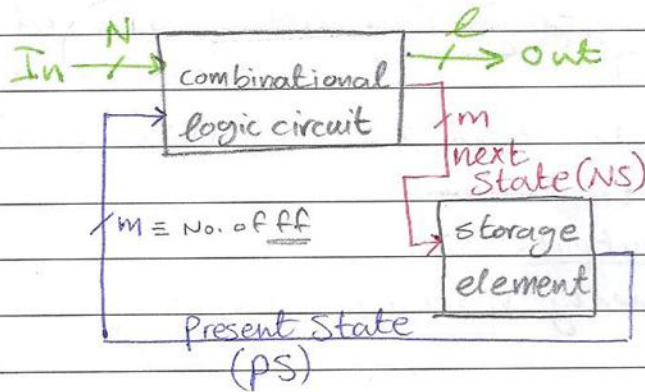 N
l
In
out
combinational
logic circuit
m
next
State (NS)
m ≡ No. of ff
storage
element
Present State
(PS)